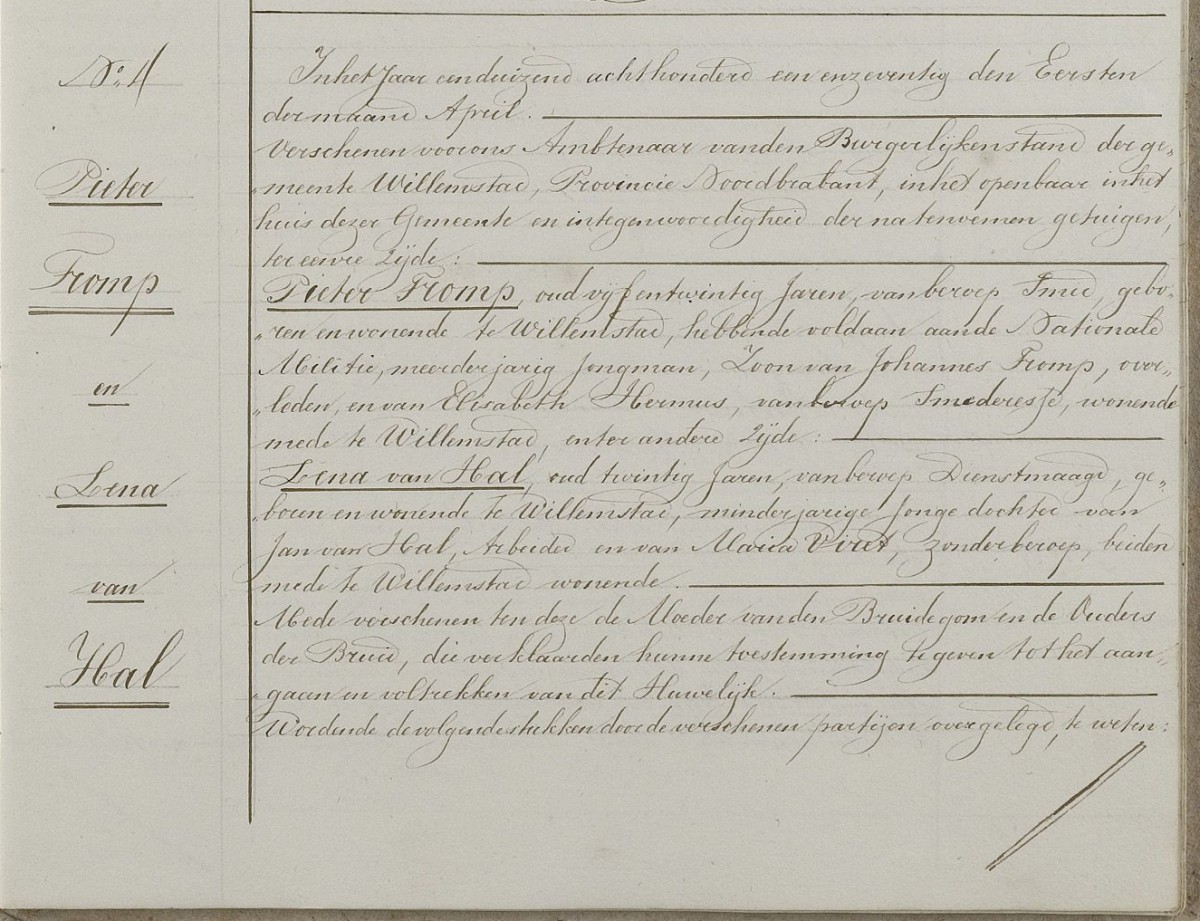 No. 4
Pieter
Fromp
en
Lena
van
Hal
In het Jaar eenduizend achthonderd een en zeventig den Eersten
der maand April.
Verschenen voor ons Ambtenaar van den Burgerlijken stand der ge„
„meente Willemstad, Provincie Noordbrabant, in het openbaar in het
huis dezer Gemeente en in tegenwoordigheid der natenoemen getuigen,
ter eenre Zijde:
Pieter Fromp, oud vijf en twintig Jaren, van beroep Smid, gebo„
„ren en wonende te Willemstad, hebbende voldaan aan de Nationale
Militie, meerderjarig Jongman, Zoon van Johannes Fromp, over„
„leden, en van Elisabeth Hermus, van beroep Smederesse, wonende
mede te Willemstad, en ter andere Zijde:
Lena van Hal, oud twintig Jaren, van beroep Dienstmaagd, ge„
„boren en wonende te Willemstad, minderjarige Jonge dochter van
Jan van Hal, Arbeider en van Maria Viret, zonder beroep, beiden
mede te Willemstad wonende.
Mede verschenen ten deze de Moeder van den Bruidegom en de Ouders
der Bruid, die verklaarden hunne toestemming te geven tot het aan„
„gaan en voltrekken van dit Huwelijk.
Wordende de volgende stukken door de verschenen partijen overgelegd, te weten: